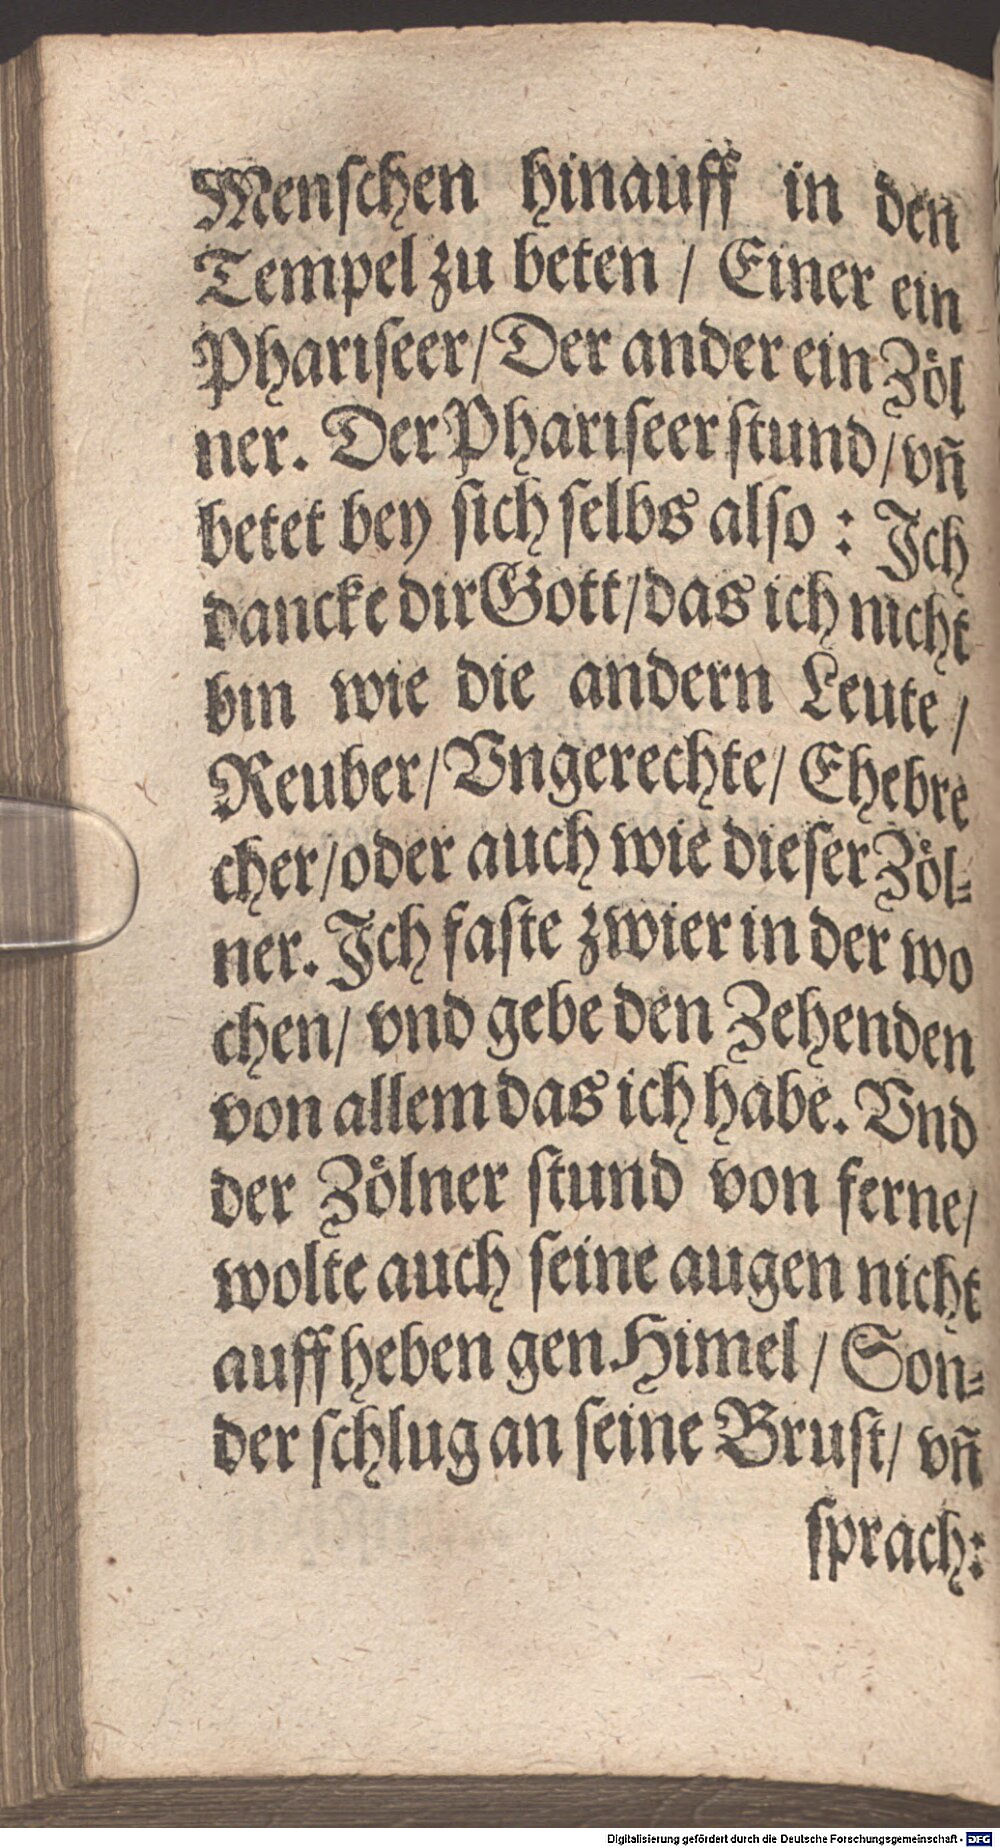 Menſchen hinauff in den
Tempel zu beten / Einer ein
Phariſeer / Der ander ein Zöl
ner. Der Phariſeer ſtund / vñ
betet bey ſich ſelbs alſo : Ich
dancke dir Gott / das ich nicht
bin wie die andern Leute /
Reuber / Vngerechte / Ehebre
cher / oder auch wie dieſer Zöl⸗
ner. Ich faſte zwier in der wo
chen / vnd gebe den Zehenden
von allem das ich habe. Vnd
der Zölner ſtund von ferne /
wolte auch ſeine augen nicht
auffheben gen Himel / Son⸗
der ſchlug an ſeine Bruſt / vñ
ſprach:
Digitalisierung gefördert durch die Deutsche Forschungsgemeinschaft - DFG